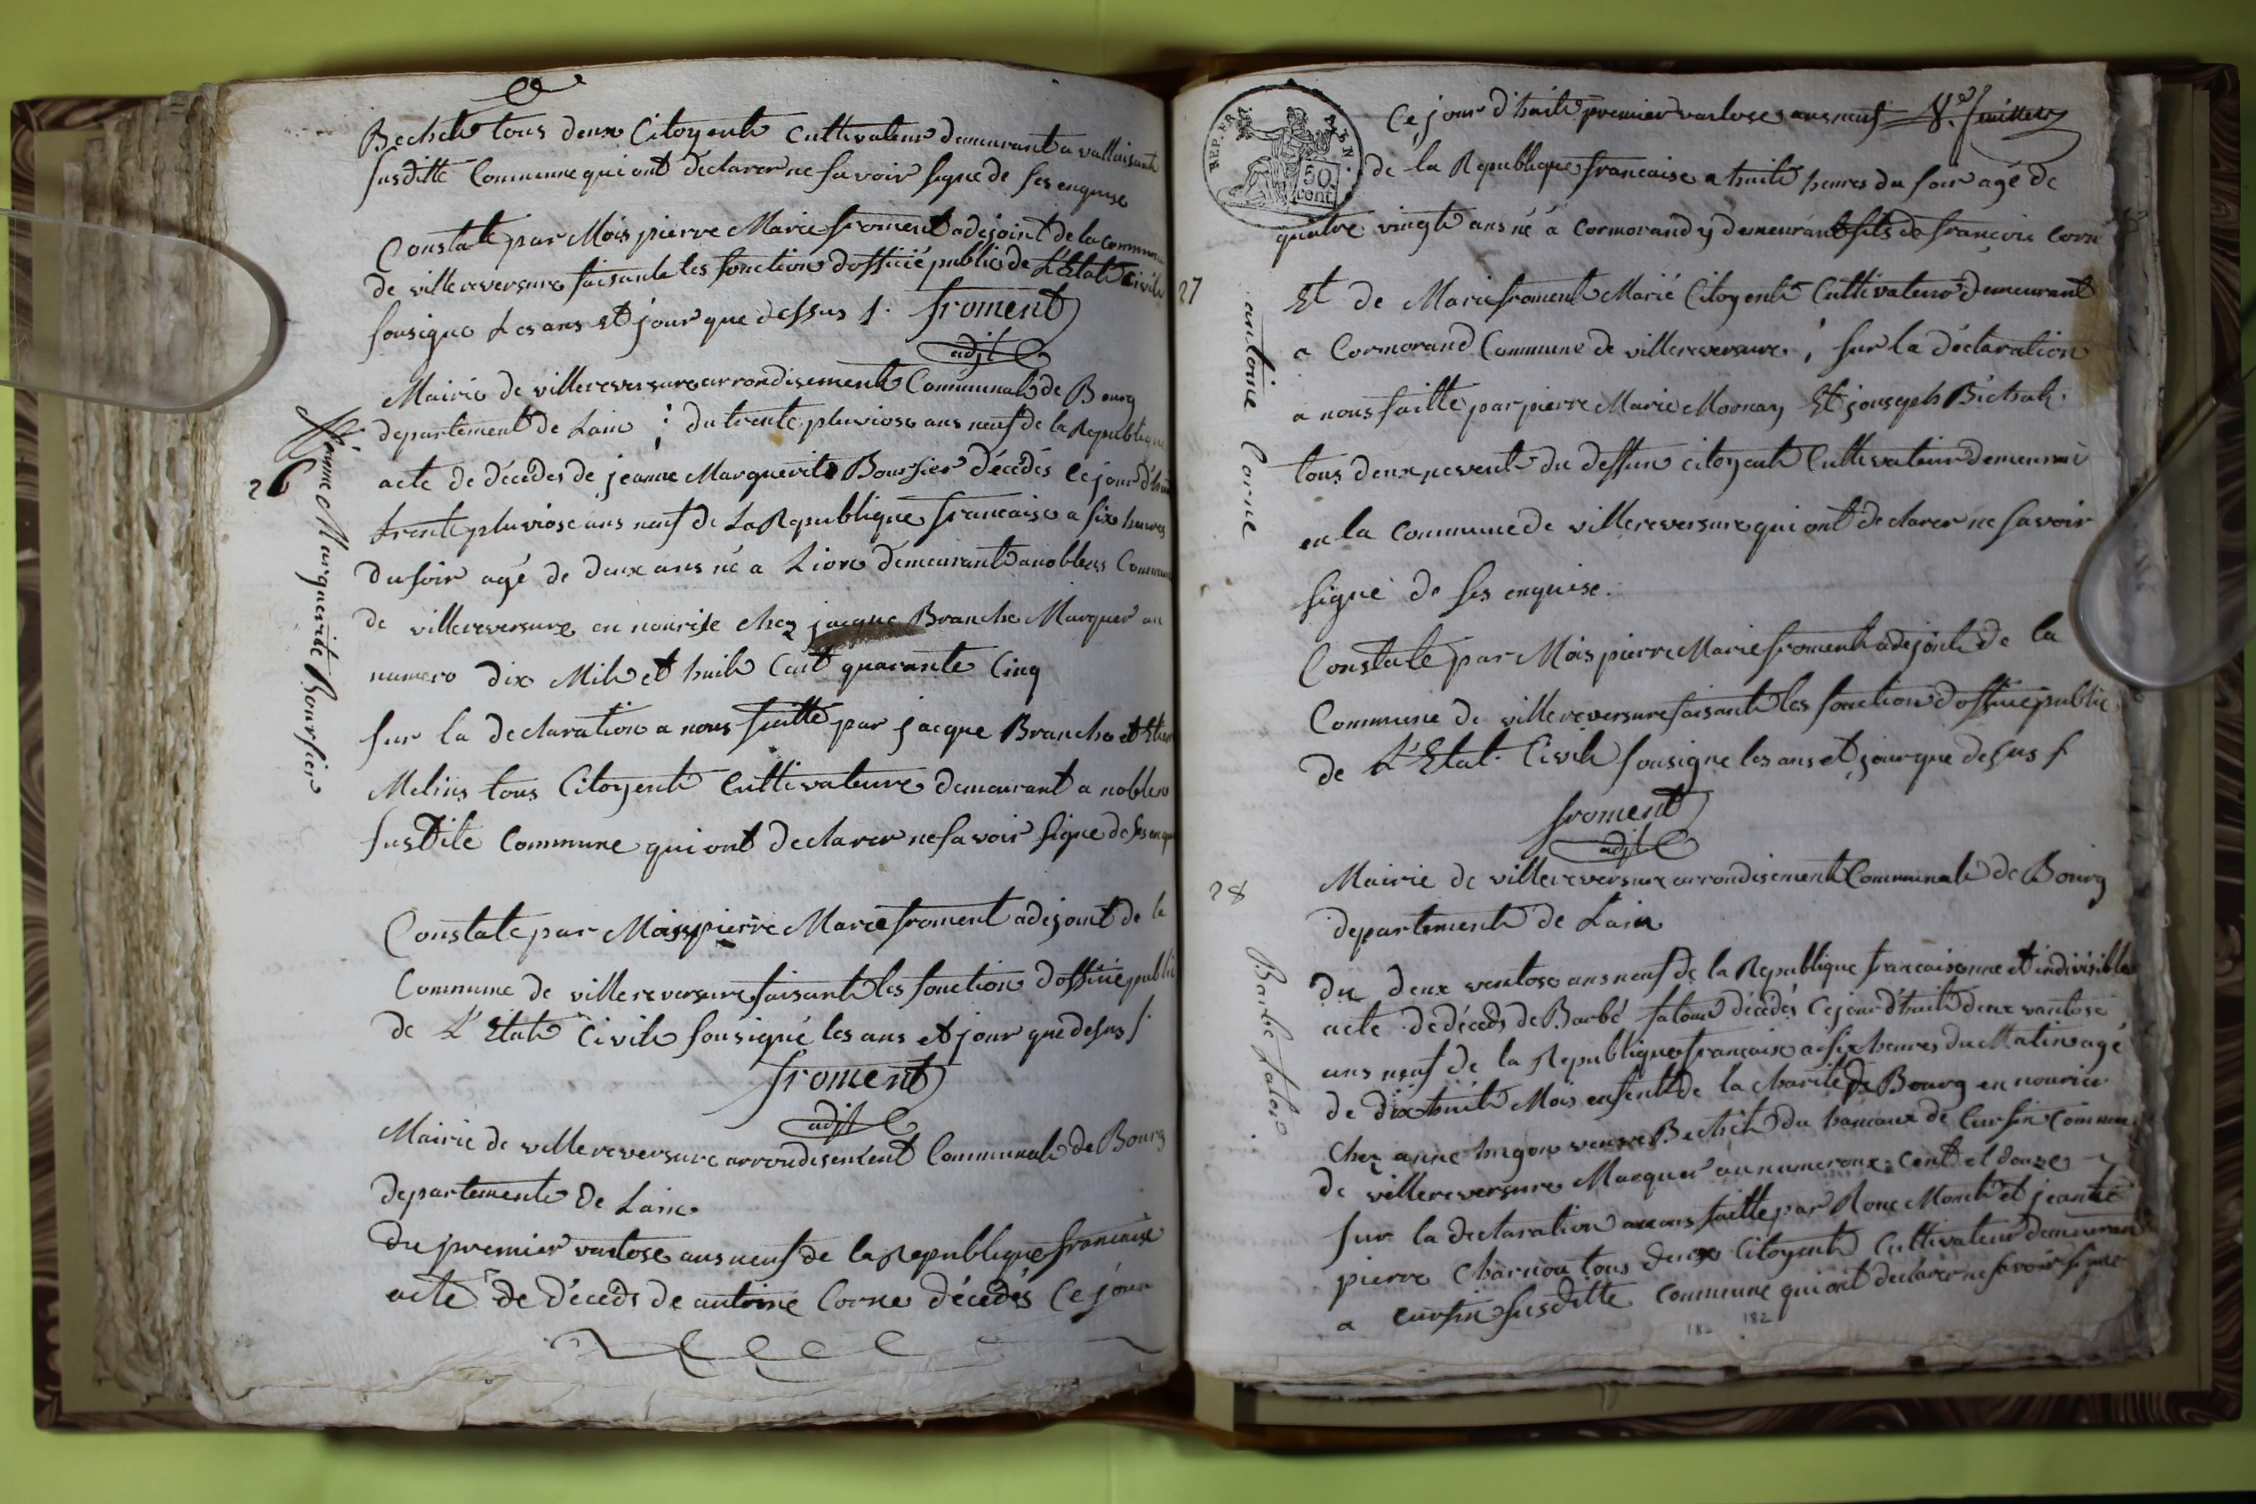 Bechet tous deux Citoyents Cultivateur demeurant a vallaisant
susditte Commune qui ont declarer ne savoir signe de ses enquise
Constate par Mois pierre Marie froment adejoint de la commune
de villereversure faisante les fonction dofficié public de L'Etat Civile
sousigne Les ans Et jour que dessus f.
froment
adjt
Mairie de villereversure arrondisement Communale de Bourg
departement de Lain ; du trente pluviose ans neuf de la Republique
26
Jeanne Marguerite Boursier
acte de décédes de jeanne Marguerite Boursier décédés ce jour d'hui
trente pluviose ans neuf de La Republique francaise a six heures
du soir agé de deux ans né a Lion demeurant a noblens Commune
de villereversure en nourise chez jacque Branche Marquer au
numero dix Mile et huit Cent quarante Cinq
sur la declaration a nous faitte par jacque Branche et
Melins tous Citoyents Cultivateure demeurant a noblens
susdite Commune qui ont declarer ne savoir signe de ses enquise
Constate par Mois pierre Marie froment adejoint de la
Commune de villereversure faisante les fonction dofficié public
de L'Etate Civile sousigné les ans et jour que desus f.
froment
adjt
Mairie de villereversure arrondisement Communale de Bourg
departemente de Lain
du premier vantose ans neuf de la Republique francaise
acte de décéds de antoine Corne décédés Ce jour
REP. FRA.
50 cent
Ce jour d'huit premier vantose ans neuf 8.e feuillet
de la Republique francaise a huit heures du soir agé de
quatre vingts ans né á Cormorand y demeurant fils de françois Corne
27
antoine Corne
Et de Marie froment Marié Citoyent Cultivateur demeurant
a Cormorand Commune de villereversure ; sur la déclaration
a nous faitte par pierre Marie Mornay Et jouseph Bichat.
tous deux nevent du deffun citoyent Cultivateur demeurant
en la Commune de villereversure qui ont declarer ne savoir
signé de ses enquise.
Constate par Mois pierre Marie froment adejoint de la
Commune de villereversure faisante les fonction dofficié public
de L'Etat Civile sousigne les ans et jour que desus f
froment
adjt
28
Barbe
Mairie de villereversure arrondisement Communale de Bourg
departemente de Lain
du deux ventose ans neuf de la Republique francaisenne et indivisible
acte de décéds de Barbé décédés Ce jour d'huit deux vantose
ans neuf de la Republique francaise a six heures du Matin agé
de dix huit Mois enfent de la charité de Bourg en nourice
chez anne hugon veuve Bechet du hameaux de Cursin Commune
de villereversure Marquer au numero cent et douze
sur la declaration a nous faitte par Rone Monet et jeant
pierre Charnou tous deux Citoyent Cultivateur demeurant
a Cursin susditte Commune qui ont declarer ne savoir signe
182 182